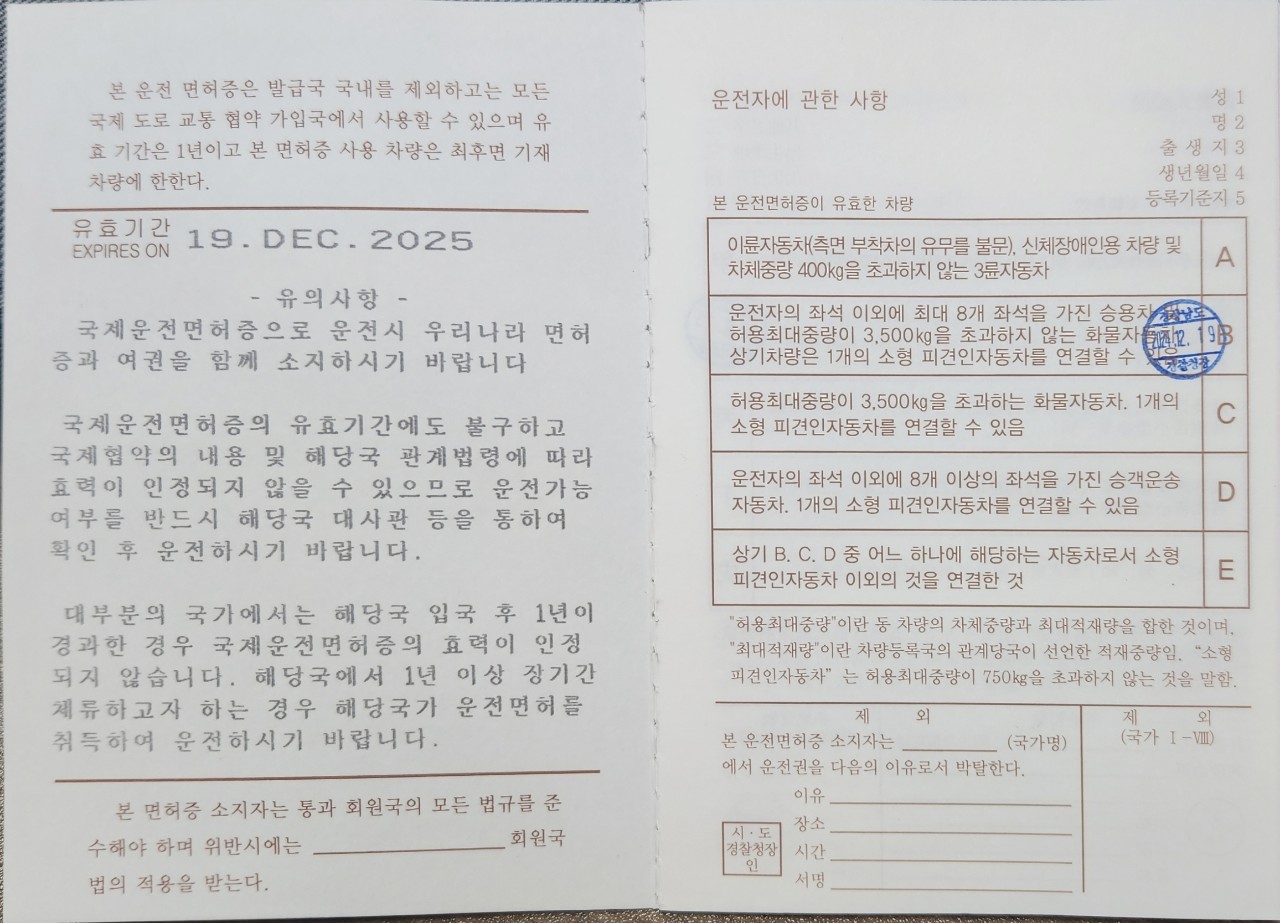 본 운전 면허증은 발급국 국내를 제외하고는 모든
국제 도로 교통 협약 가입국에서 사용할 수 있으며 유
효 기간은 1년이고 본 면허증 사용 차량은 최후면 기재
차량에 한한다.
유효기간
EXPIRES ON
19.DEC.2025
- 유의사항 -
국제운전면허증으로 운전시 우리나라 면허
증과 여권을 함께 소지하시기 바랍니다
국제운전면허증의 유효기간에도 불구하고
국제협약의 내용 및 해당국 관계법령에 따라
효력이 인정되지 않을 수 있으므로 운전가능
여부를 반드시 해당국 대사관 등을 통하여
확인 후 운전하시기 바랍니다.
대부분의 국가에서는 해당국 입국 후 1년이
경과한 경우 국제운전면허증의 효력이 인정
되지 않습니다. 해당국에서 1년 이상 장기간
체류하고자 하는 경우 해당국가 운전면허를
취득하여 운전하시기 바랍니다.
본 면허증 소지자는 통과 회원국의 모든 법규를 준
수해야 하며 위반시에는 회원국
법의 적용을 받는다.
운전자에 관한 사항
성 1
명 2
출 생 지 3
생년월일 4
등록기준지 5
본 운전면허증이 유효한 차량
이륜자동차(측면 부착차의 유무를 불문), 신체장애인용 차량 및
차체중량 400kg을 초과하지 않는 3륜자동차
A
운전자의 좌석 이외에 최대 8개 좌석을 가진 승용차
허용최대중량이 3,500kg을 초과하지 않는 화물자동차
상기차량은 1개의 소형 피견인자동차를 연결할 수 있음
B
경상남도
2024.12.19
경찰청장
허용최대중량이 3,500kg을 초과하는 화물자동차. 1개의
소형 피견인자동차를 연결할 수 있음
C
운전자의 좌석 이외에 8개 이상의 좌석을 가진 승객운송
자동차. 1개의 소형 피견인자동차를 연결할 수 있음
D
상기 B. C. D 중 어느 하나에 해당하는 자동차로서 소형
피견인자동차 이외의 것을 연결한 것
E
"허용최대중량"이란 동 차량의 차체중량과 최대적재량을 합한 것이며,
"최대적재량"이란 차량등록국의 관계당국이 선언한 적재중량임. "소형
피견인자동차" 는 허용최대중량이 750kg을 초과하지 않는 것을 말함.
제 외
본 운전면허증 소지자는 (국가명)
에서 운전권을 다음의 이유로서 박탈한다.
이유
장소
시간
서명
시·도
경찰청장
인
제 외
(국가 Ⅰ-Ⅷ)